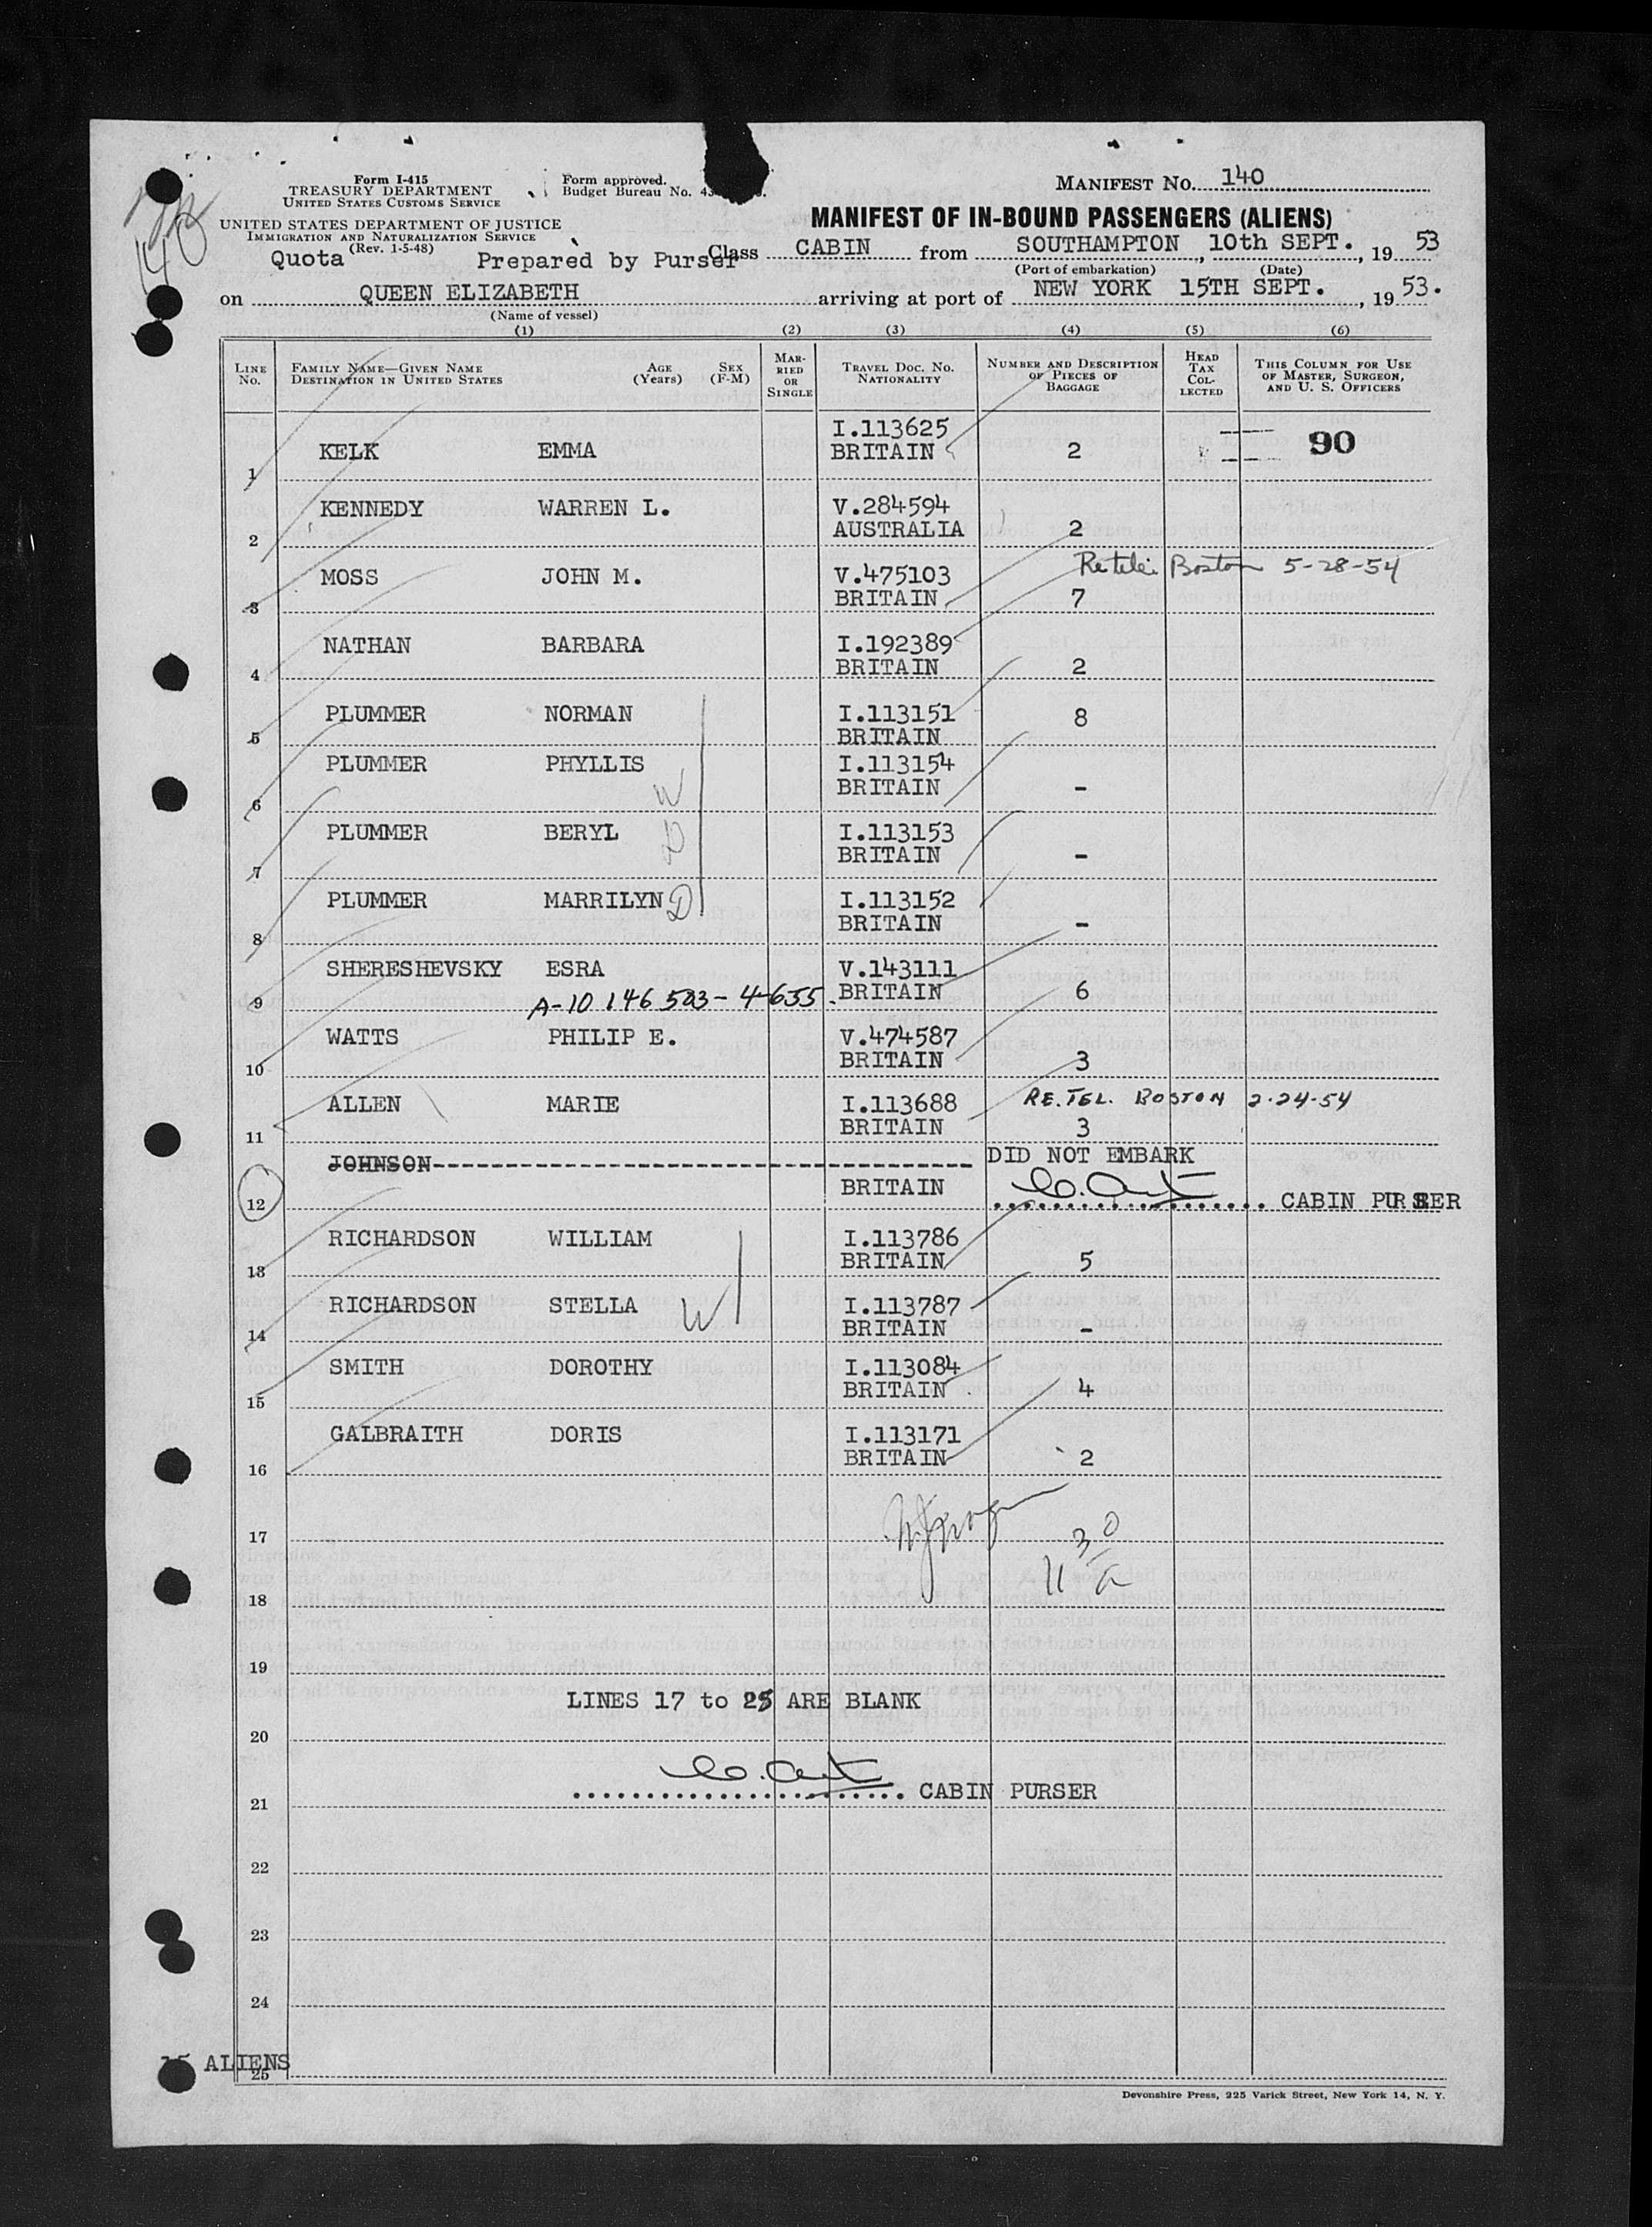 Form I-415
TREASURY DEPARTMENT
UNITED STATES CUSTOMS SERVICE
UNITED STATES DEPARTMENT OF JUSTICE
IMMIGRATION AND NATURALIZATION SERVICE
(Rev. 1-5-48)
Form approved.
Budget Bureau No.
MANIFEST No. 140
MANIFEST OF IN-BOUND PASSENGERS (ALIENS)
Quota Prepared by Purser Class CABIN from SOUTHAMPTON, 10th SEPT., 19 53
(Port of embarkation) (Date)
on QUEEN ELIZABETH arriving at port of NEW YORK 15TH SEPT., 19 53.
(Name of vessel)
(1) (2) (3) (4) (5) (6)
LINE No. FAMILY NAME—GIVEN NAME DESTINATION IN UNITED STATES AGE (Years) SEX (F-M) MARRIED OR SINGLE TRAVEL DOC. NO. NATIONALITY NUMBER AND DESCRIPTION OF PIECES OF BAGGAGE HEAD TAX COLLECTED THIS COLUMN FOR USE OF MASTER, SURGEON, AND U. S. OFFICERS
1 KELK EMMA I.113625 BRITAIN 2 90
2 KENNEDY WARREN L. V.284594 AUSTRALIA 2
3 MOSS JOHN M. V.475103 BRITAIN 7 Boston 5-28-54
4 NATHAN BARBARA I.192389 BRITAIN 2
5 PLUMMER NORMAN I.113151 BRITAIN 8
6 PLUMMER PHYLLIS W I.113154 BRITAIN -
7 PLUMMER BERYL D I.113153 BRITAIN -
8 PLUMMER MARRILYN D I.113152 BRITAIN -
9 SHERESHEVSKY ESRA V.143111 BRITAIN 6
A-10 146 503 - 4-655.
10 WATTS PHILIP E. V.474587 BRITAIN 3
11 ALLEN MARIE I.113688 BRITAIN 3 RE. TEL. BOSTON 2-24-54
12 JOHNSON BRITAIN DID NOT EMBARK
CABIN PURSER
13 RICHARDSON WILLIAM I.113786 BRITAIN 5
14 RICHARDSON STELLA W I.113787 BRITAIN -
15 SMITH DOROTHY I.113084 BRITAIN 4
16 GALBRAITH DORIS I.113171 BRITAIN 2
17
18
19
LINES 17 to 25 ARE BLANK
20
21 CABIN PURSER
22
23
24
25
ALIENS
Devonshire Press, 225 Varick Street, New York 14, N. Y.